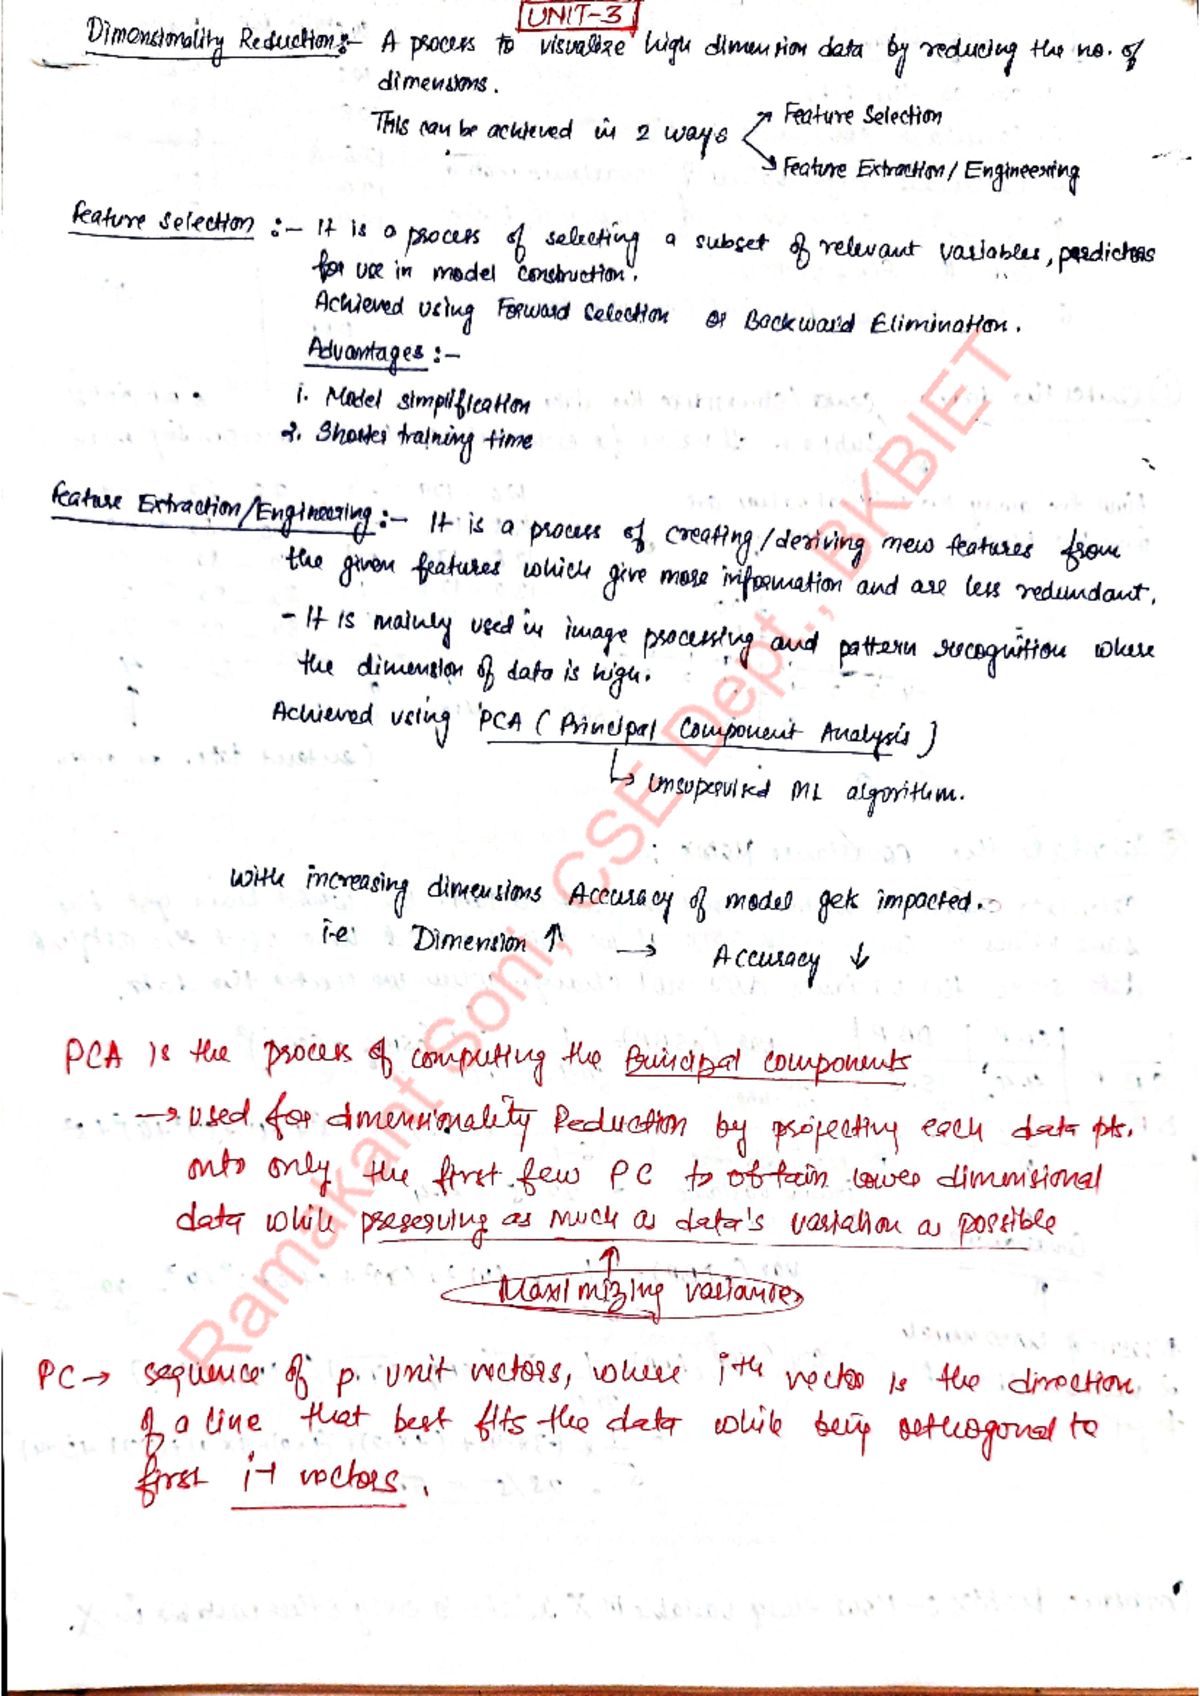 UNIT-3
Dimensionality Reduction :- A process to visualize high dimension data by reducing the no. of
dimensions.
This can be achieved in 2 ways
Feature Selection
Feature Extraction/ Engineering
Feature Selection :- It is a process of selecting a subset of relevant variables, predictors
for use in model construction.
Achieved using Forward Selection or Backward Elimination.
Advantages :-
1. Model simplification
2. Shorter training time
Feature Extraction/Engineering :- It is a process of creating/deriving new features from
the given features which give more information and are less redundant.
- It is mainly used in image processing and pattern recognition where
the dimension of data is high.
Achieved using PCA (Principal Component Analysis)
↳ Unsupervised ML algorithm.
With increasing dimensions Accuracy of model gets impacted.
i.e. Dimension ↑ → Accuracy ↓
PCA is the process of computing the Principal components
→ used for dimensionality Reduction by projecting each data pts.
onto only the first few PC to obtain lower dimensional
data while preserving as much as data's variation as possible
↑
Maximizing variance
PC → sequence of p. unit vectors, where ith vector is the direction
of a line that best fits the data while being orthogonal to
first i-1 vectors.
Ramakant Soni, CSE Dept., BKBIET